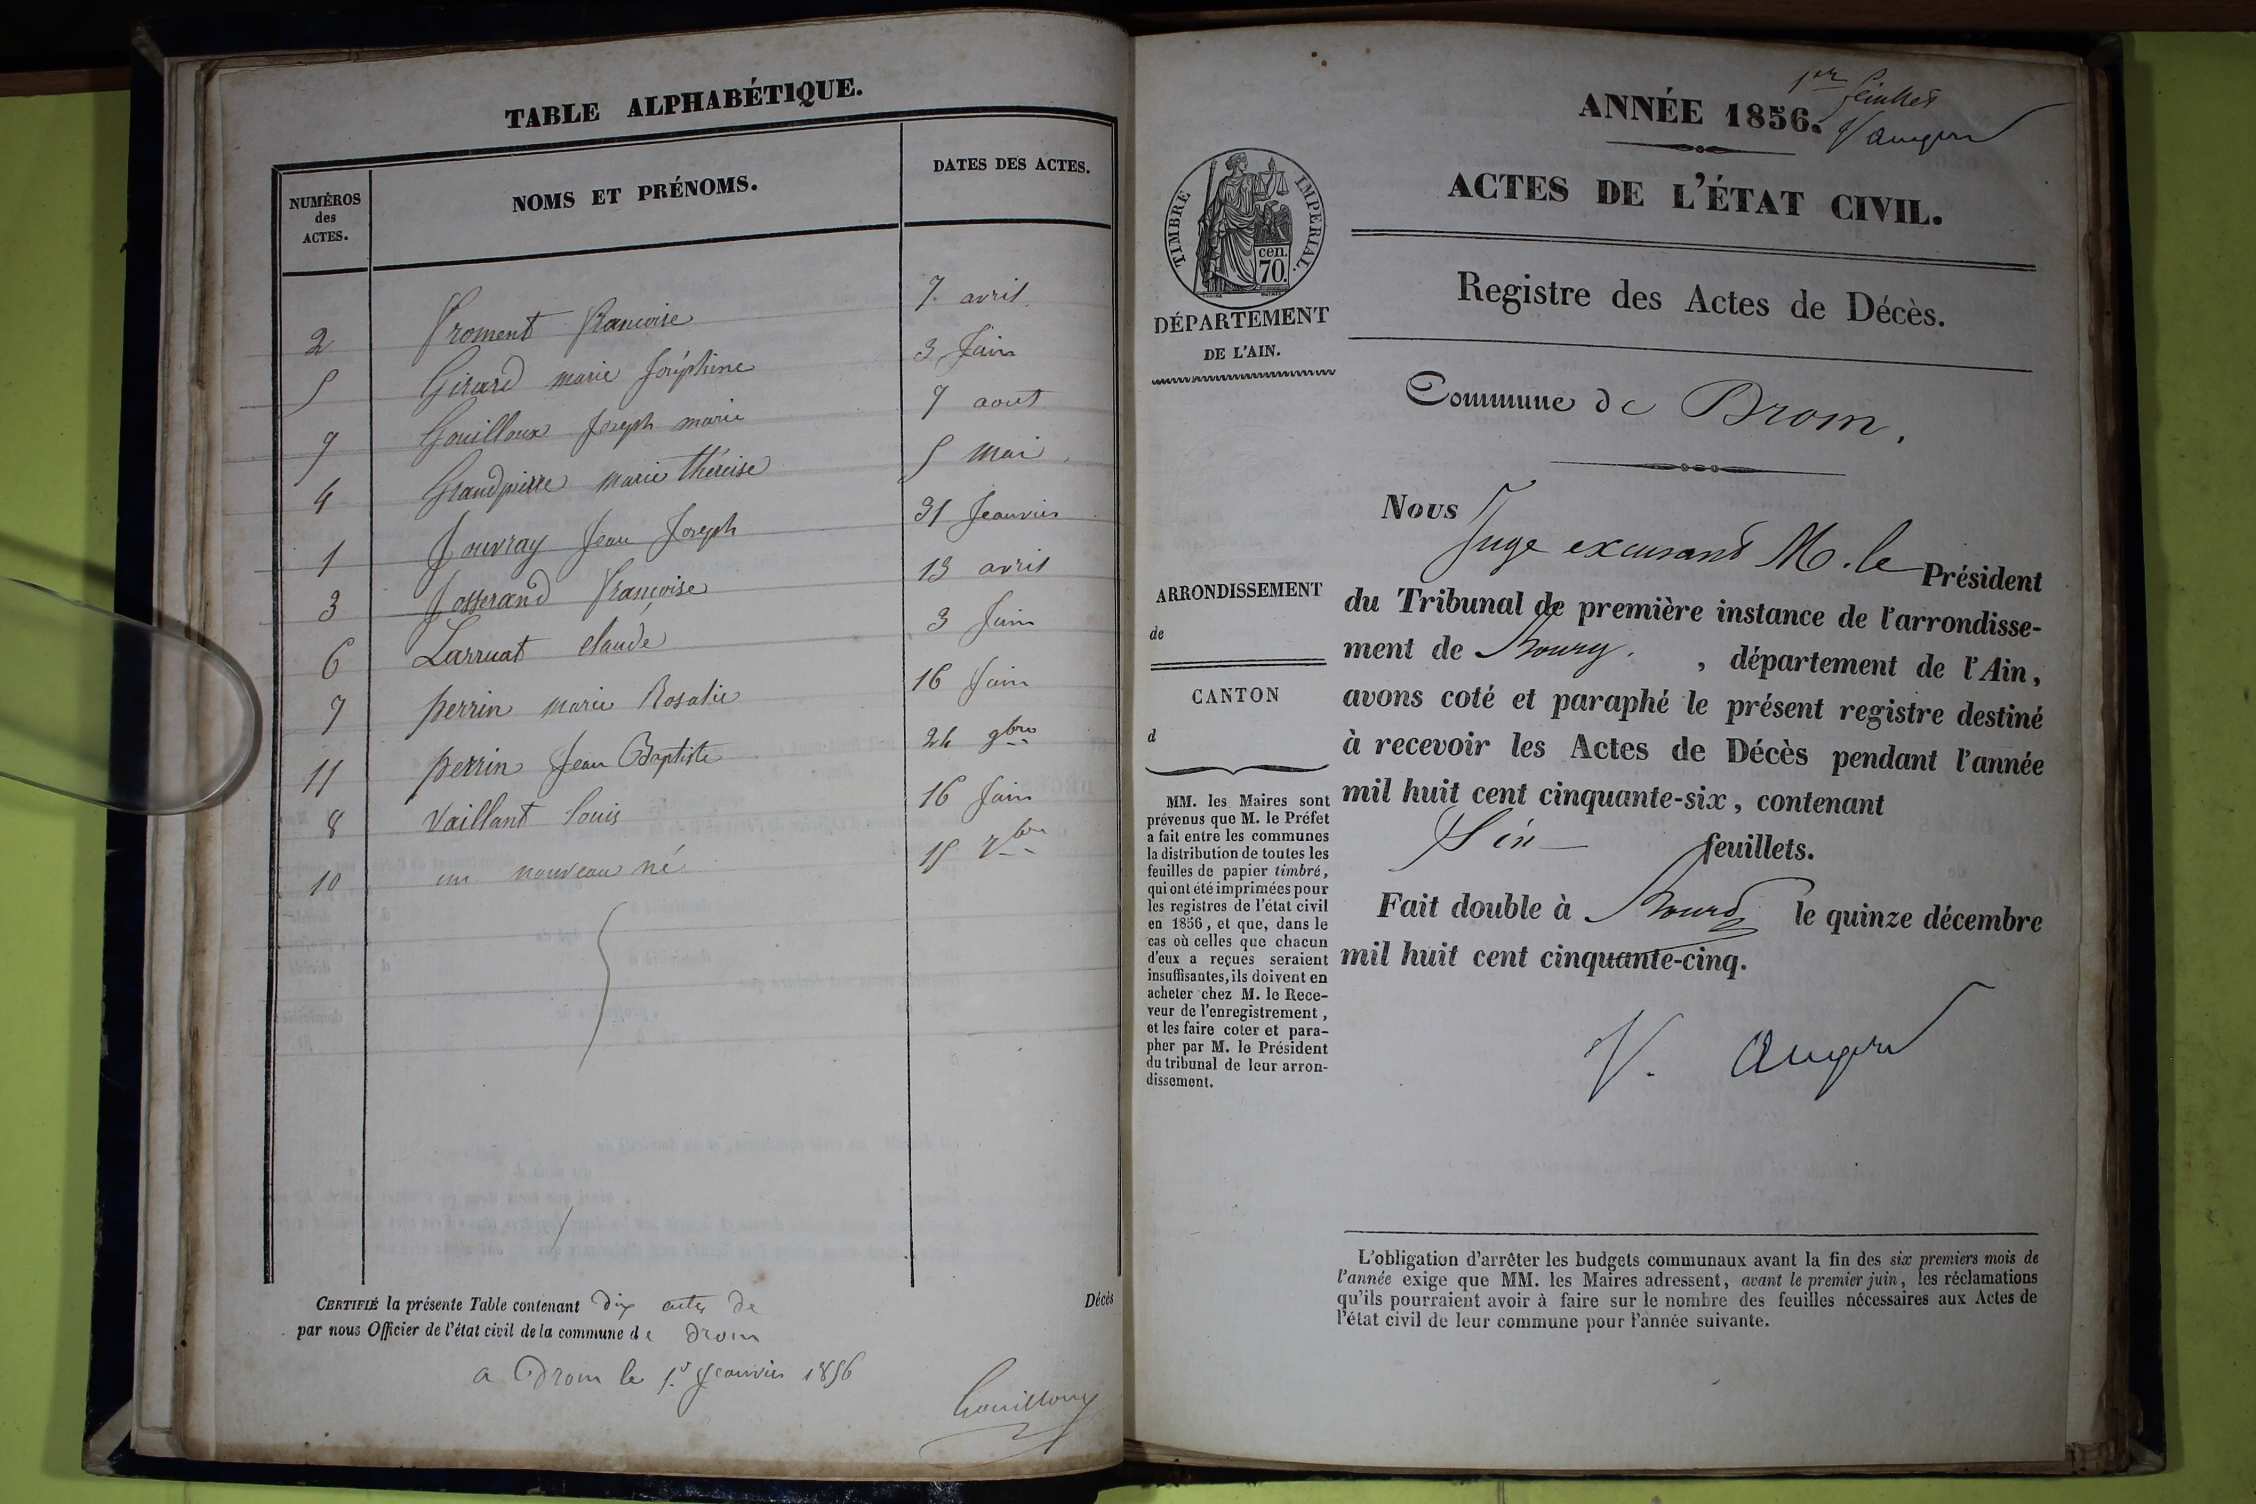 TABLE ALPHABÉTIQUE.
NUMÉROS des ACTES. NOMS ET PRÉNOMS. DATES DES ACTES.
2 Froment Francoise 7 avril
5 Girard marie Joséphine 3 Juin
9 Gouilloux Joseph marie 7 aout
4 Grandpierre marie thérèise 5 mai
1 Jouvray Jean Joseph 31 Jeanvier
3 Josserand Françoise 13 avril
6 Larruat Claude 3 Juin
7 perrin marie Rosalie 16 Juin
11 perrin Jean Baptiste 24 9bre
8 Vaillant Louis 16 Juin
10 un nouveau né 15
CERTIFIÉ la présente Table contenant dix actes de Décès
par nous Officier de l'état civil de la commune de Drom
a Drom le 1er Jeanvier 1856
Gouilloux
1er feuillet
V Auger
ANNÉE 1856.
ACTES DE L'ÉTAT CIVIL.
TIMBRE IMPERIAL.
cen.
70.
DÉPARTEMENT
DE L'AIN.
Registre des Actes de Décès.
Commune de Drom.
ARRONDISSEMENT
de
CANTON
d
MM. les Maires sont
prévenus que M. le Préfet
a fait entre les communes
la distribution de toutes les
feuilles de papier timbré,
qui ont été imprimées pour
les registres de l'état civil
en 1856, et que, dans le
cas où celles que chacun
d'eux a reçues seraient
insuffisantes, ils doivent en
acheter chez M. le Rece-
veur de l'enregistrement,
et les faire coter et para-
pher par M. le Président
du tribunal de leur arron-
dissement.
Nous
Juge excusant M. le Président
du Tribunal de première instance de l'arrondisse-
ment de Bourg. , département de l'Ain,
avons coté et paraphé le présent registre destiné
à recevoir les Actes de Décès pendant l'année
mil huit cent cinquante-six, contenant
Six feuillets.
Fait double à Bourg le quinze décembre
mil huit cent cinquante-cinq.
V. Auger
L'obligation d'arrêter les budgets communaux avant la fin des six premiers mois de
l'année exige que MM. les Maires adressent, avant le premier juin, les réclamations
qu'ils pourraient avoir à faire sur le nombre des feuilles nécessaires aux Actes de
l'état civil de leur commune pour l'année suivante.